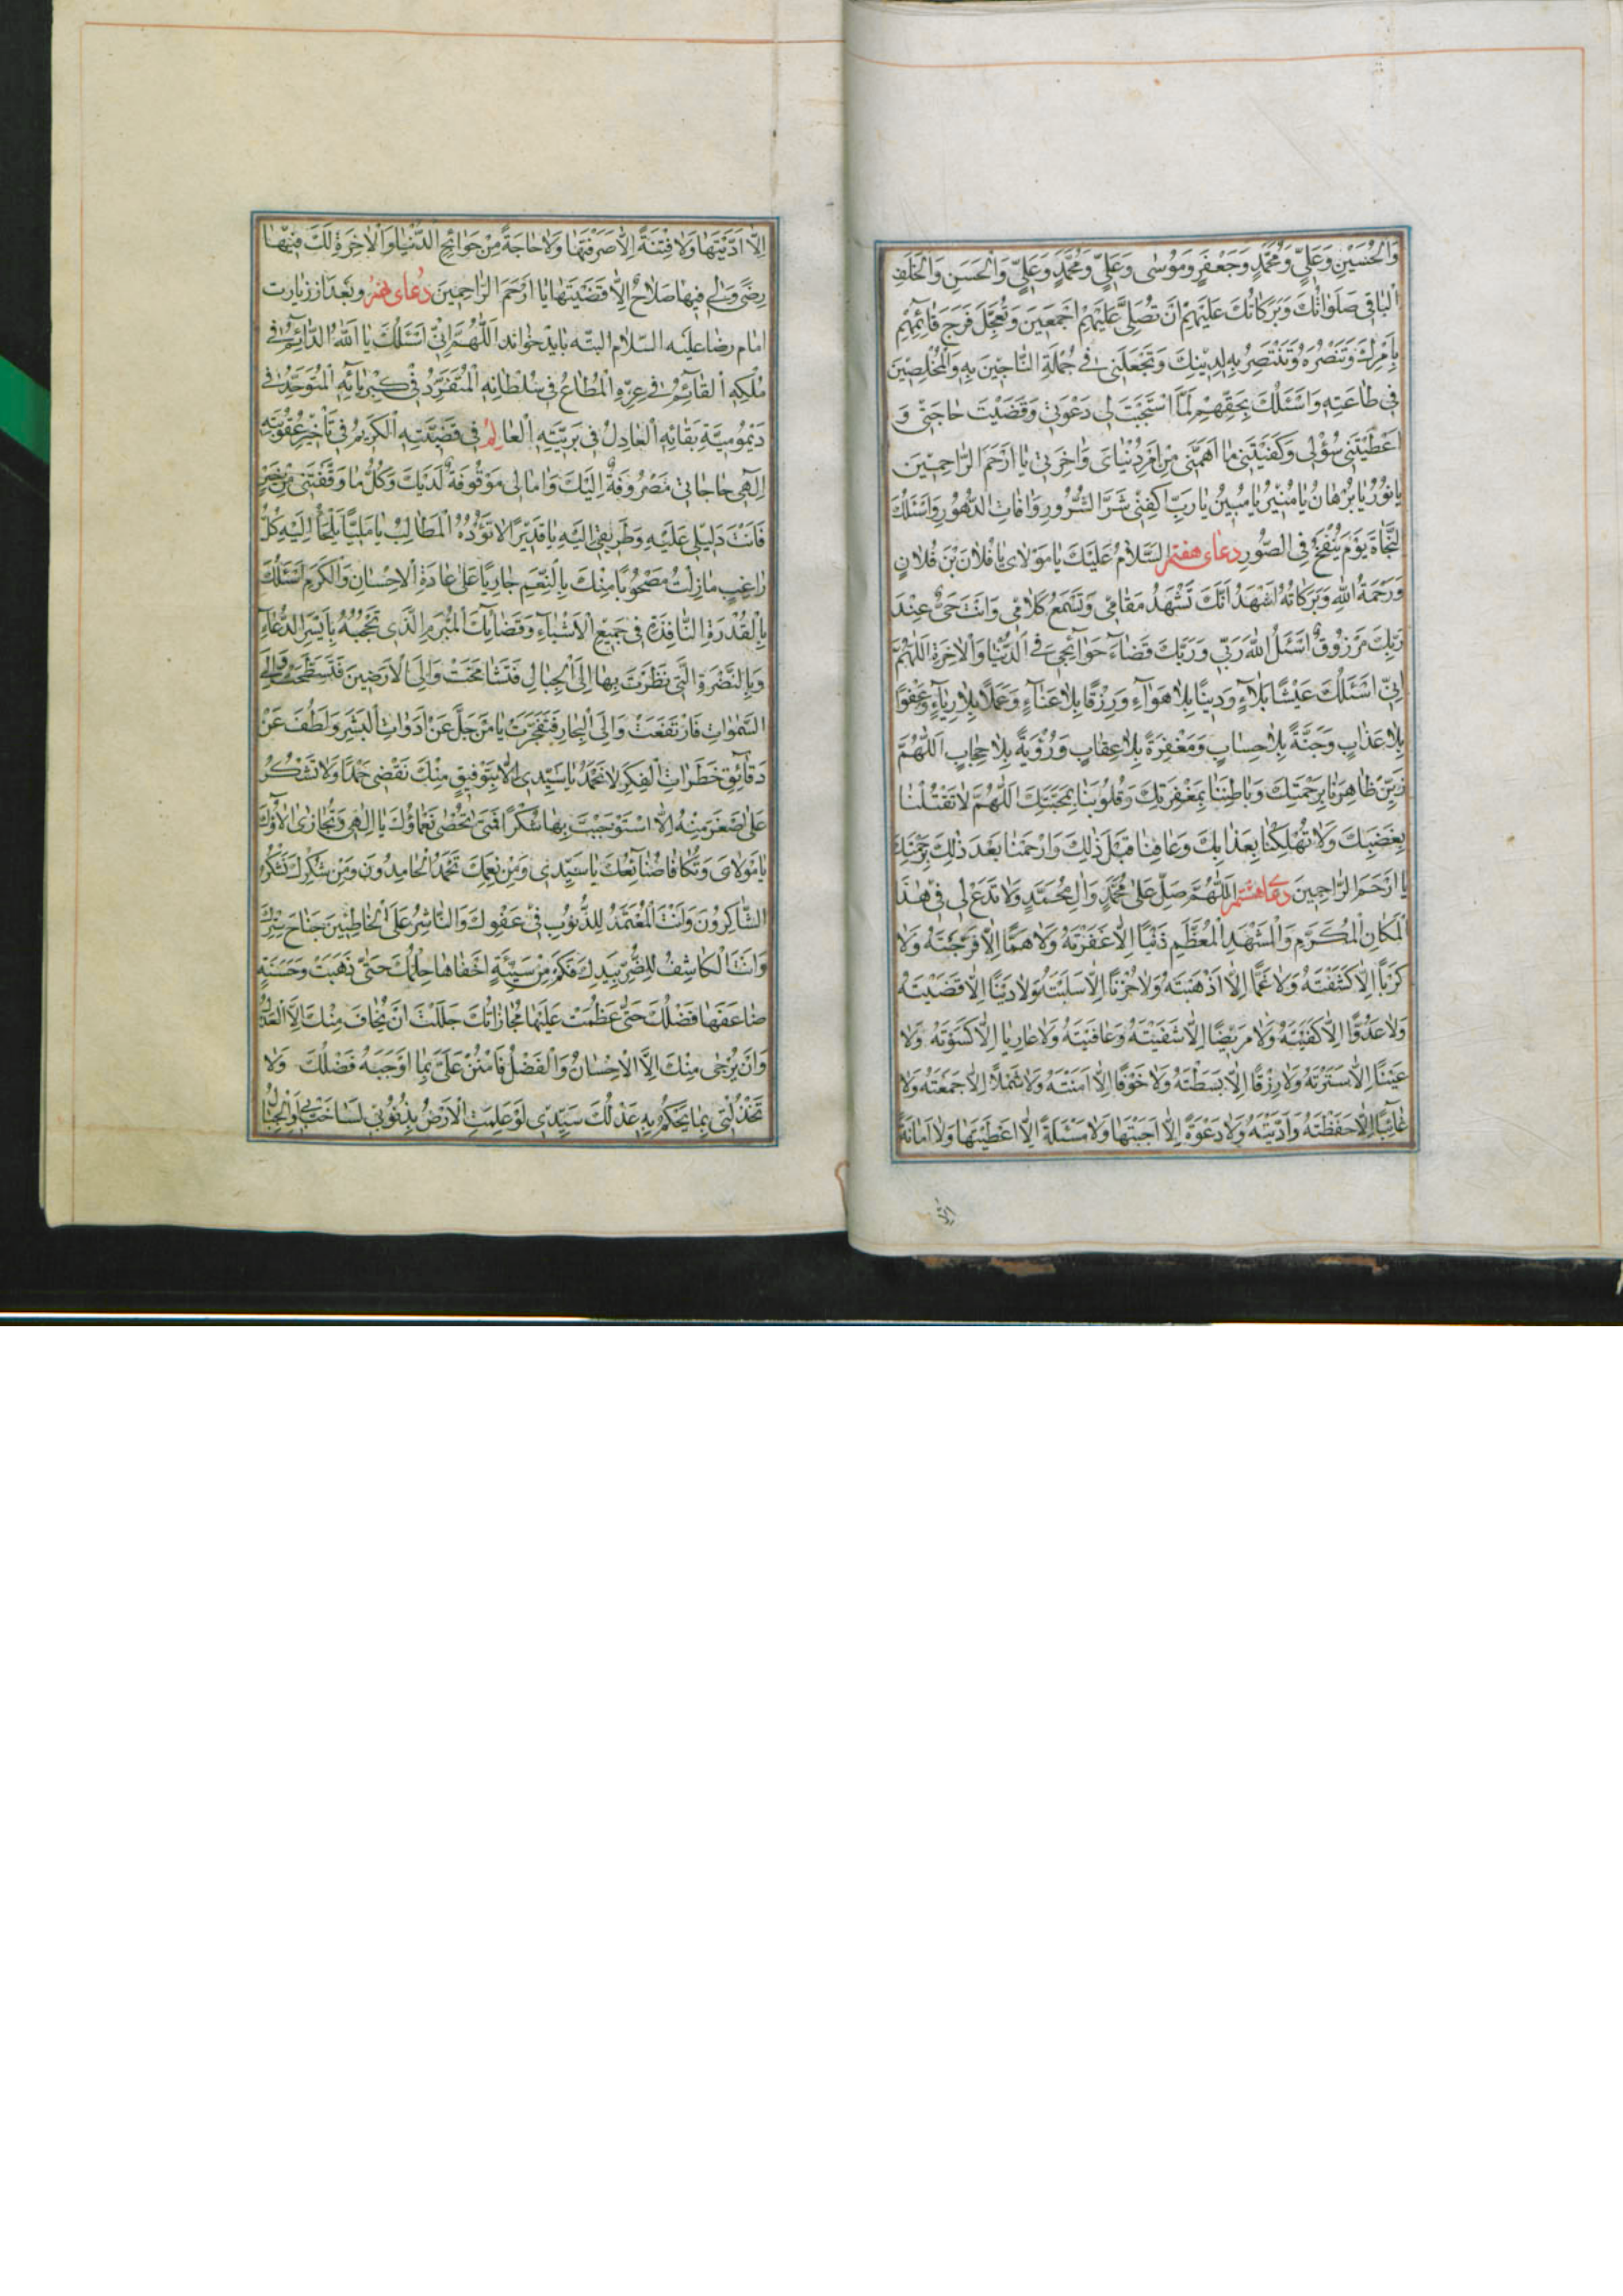 وَالْحُسَيْنِ وَعَلِيٍّ وَمُحَمَّدٍ وَجَعْفَرٍ وَمُوسٰى وَعَلِيٍّ وَمُحَمَّدٍ وَعَلِيٍّ وَالْحَسَنِ وَالْخَلَفِ
الْبَاقِى صَلَوَاتُكَ وَبَرَكَاتُكَ عَلَيْهِمْ اَنْ تُصَلِّىَ عَلَيْهِمْ اَجْمَعِينَ وَتُعَجِّلَ فَرَجَ قَائِمِهِمْ
بِاَمْرِكَ وَتَنْصُرَهُ وَتَنْتَصِرَ بِهِ لِدِينِكَ وَتَجْعَلَنِى فِى جُمْلَةِ النَّاجِينَ بِهِ وَالْمُخْلِصِينَ
فِى طَاعَتِهِ وَاَسْئَلُكَ بِحَقِّهِمْ لَمَّا اسْتَجَبْتَ لِى دَعْوَتِى وَقَضَيْتَ حَاجَتِى وَ
اَعْطَيْتَنِى سُؤْلِى وَكَفَيْتَنِى مَا اَهَمَّنِى مِنْ اَمْرِ دُنْيَاىَ وَاٰخِرَتِى يَا اَرْحَمَ الرَّاحِمِينَ
يَا نُورُ يَا بُرْهَانُ يَا مُنِيرُ يَا مُبِينُ يَا رَبِّ اكْفِنِى شَرَّ الشُّرُورِ وَاٰفَاتِ الدُّهُورِ وَاَسْئَلُكَ
النَّجَاةَ يَوْمَ يُنْفَخُ فِى الصُّورِ دعاى هفتم اَلسَّلَامُ عَلَيْكَ يَا مَوْلَاىَ يَا فُلَانَ بْنَ فُلَانٍ
وَرَحْمَةُ اللّٰهِ وَبَرَكَاتُهُ اَشْهَدُ اَنَّكَ تَشْهَدُ مَقَامِى وَتَسْمَعُ كَلَامِى وَاَنْتَ حَىٌّ عِنْدَ
رَبِّكَ مَرْزُوقٌ اَسْئَلُ اللّٰهَ رَبِّى وَرَبَّكَ قَضَاءَ حَوَائِجِى فِى الدُّنْيَا وَالْاٰخِرَةِ اَللّٰهُمَّ
اِنِّى اَسْئَلُكَ عَيْشًا بِلَا بَلَاءٍ وَدِينًا بِلَا هَوَاءٍ وَرِزْقًا بِلَا عَنَاءٍ وَعَمَلًا بِلَا رِيَاءٍ وَعَفْوًا
بِلَا عَذَابٍ وَجَنَّةً بِلَا حِسَابٍ وَمَغْفِرَةً بِلَا عِقَابٍ وَرُؤْيَةً بِلَا حِجَابٍ اَللّٰهُمَّ
زَيِّنْ ظَاهِرَنَا بِرَحْمَتِكَ وَبَاطِنَنَا بِمَغْفِرَتِكَ وَقُلُوبَنَا بِمَحَبَّتِكَ اَللّٰهُمَّ لَا تَقْتُلْنَا
بِغَضَبِكَ وَلَا تُهْلِكْنَا بِعَذَابِكَ وَعَافِنَا قَبْلَ ذٰلِكَ وَارْحَمْنَا بَعْدَ ذٰلِكَ بِرَحْمَتِكَ
يَا اَرْحَمَ الرَّاحِمِينَ دعا هشتم اَللّٰهُمَّ صَلِّ عَلٰى مُحَمَّدٍ وَاٰلِ مُحَمَّدٍ وَلَا تَدَعْ لِى فِى هٰذَا
الْمَكَانِ الْمُكَرَّمِ وَالْمَشْهَدِ الْمُعَظَّمِ ذَنْبًا اِلَّا غَفَرْتَهُ وَلَا هَمًّا اِلَّا فَرَّجْتَهُ وَلَا
كَرْبًا اِلَّا كَشَفْتَهُ وَلَا غَمًّا اِلَّا اَذْهَبْتَهُ وَلَا حُزْنًا اِلَّا سَلَبْتَهُ وَلَا دَيْنًا اِلَّا قَضَيْتَهُ
وَلَا عَدُوًّا اِلَّا كَفَيْتَهُ وَلَا مَرِيضًا اِلَّا شَفَيْتَهُ وَعَافَيْتَهُ وَلَا عَارِيًا اِلَّا كَسَوْتَهُ وَلَا
عَيْبًا اِلَّا سَتَرْتَهُ وَلَا رِزْقًا اِلَّا بَسَطْتَهُ وَلَا خَوْفًا اِلَّا اٰمَنْتَهُ وَلَا شَمْلًا اِلَّا جَمَعْتَهُ وَلَا
غَائِبًا اِلَّا حَفَظْتَهُ وَاَدَّيْتَهُ وَلَا دَعْوَةً اِلَّا اَجَبْتَهَا وَلَا مَسْئَلَةً اِلَّا اَعْطَيْتَهَا وَلَا اَمَانَةً
اِلَّا
اِلَّا اَدَّيْتَهَا وَلَا فِتْنَةً اِلَّا صَرَفْتَهَا وَلَا حَاجَةً مِنْ حَوَائِجِ الدُّنْيَا وَالْاٰخِرَةِ لَكَ فِيهَا
رِضًى وَلِى فِيهَا صَلَاحٌ اِلَّا قَضَيْتَهَا يَا اَرْحَمَ الرَّاحِمِينَ دعاى نهم وبعد از زيارت
امام رضا عليه السلام البته بايد خواند اَللّٰهُمَّ اِنِّى اَسْئَلُكَ يَا اَللّٰهُ الدَّائِمُ فِى
مُلْكِهِ الْقَائِمُ فِى عِزِّهِ الْمُطَاعُ فِى سُلْطَانِهِ الْمُتَفَرِّدُ فِى كِبْرِيَائِهِ الْمُتَوَحِّدُ فِى
دَيْمُومِيَّةِ بَقَائِهِ الْعَادِلُ فِى بَرِيَّتِهِ الْعَالِمُ فِى قَضِيَّتِهِ الْكَرِيمُ فِى تَأْخِيرِ عُقُوبَتِهِ
اِلٰهِى حَاجَاتِى مَصْرُوفَةٌ اِلَيْكَ وَاٰمَالِى مَوْقُوفَةٌ لَدَيْكَ وَكُلُّ مَا وَفَّقْتَنِى مِنْ خَيْرٍ
فَاَنْتَ دَلِيلِى عَلَيْهِ وَطَرِيقِى اِلَيْهِ يَا قَدِيرًا لَا تَؤُدُهُ الْمَطَالِبُ يَا مَلِيًّا يَلْجَأُ اِلَيْهِ كُلُّ
رَاغِبٍ مَا زِلْتُ مَصْحُوبًا مِنْكَ بِالنِّعَمِ جَارِيًا عَلٰى عَادَةِ الْاِحْسَانِ وَالْكَرَمِ اَسْئَلُكَ
بِالْقُدْرَةِ النَّافِذَةِ فِى جَمِيعِ الْاَشْيَاءِ وَقَضَائِكَ الْمُبْرَمِ الَّذِى تَحْجُبُهُ بِاَيْسَرِ الدُّعَاءِ
وَبِالنَّظْرَةِ الَّتِى نَظَرْتَ بِهَا اِلَى الْجِبَالِ فَتَشَامَخَتْ وَاِلَى الْاَرَضِينَ فَتَسَطَّحَتْ وَاِلَى
السَّمٰوَاتِ فَارْتَفَعَتْ وَاِلَى الْبِحَارِ فَتَفَجَّرَتْ يَا مَنْ جَلَّ عَنْ اَدَوَاتِ الْبَشَرِ وَلَطُفَ عَنْ
دَقَائِقِ خَطَرَاتِ الْفِكَرِ لَا تُحْمَدُ يَا سَيِّدِى اِلَّا بِتَوْفِيقٍ مِنْكَ تَقْضِى حَمْدًا وَلَا تُشْكَرُ
عَلٰى اَصْغَرِ مِنَّةٍ اِلَّا اسْتَوْجَبْتَ بِهَا شُكْرًا فَمَتٰى تُحْصٰى نَعْمَاؤُكَ يَا اِلٰهِى وَتُجَازٰى اٰلَاؤُكَ
يَا مَوْلَاىَ وَتُكَافَا صَنَائِعُكَ يَا سَيِّدِى وَمِنْ نِعَمِكَ تَحْمَدُ الْحَامِدُونَ وَمِنْ شُكْرِكَ تَشْكُرُ
الشَّاكِرُونَ وَاَنْتَ الْمُعْتَمَدُ لِلذُّنُوبِ فِى عَفْوِكَ وَالنَّاشِرُ عَلَى الْخَاطِئِينَ جَنَاحَ سِتْرِكَ
وَاَنْتَ الْكَاشِفُ لِلضُّرِّ بِيَدِكَ فَكَمْ مِنْ سَيِّئَةٍ اَخْفَاهَا حِلْمُكَ حَتّٰى ذَهَبَتْ وَحَسَنَةٍ
ضَاعَفَهَا فَضْلُكَ حَتّٰى عَظُمَتْ عَلَيْهَا مُجَازَاتُكَ جَلَلْتَ اَنْ يُخَافَ مِنْكَ اِلَّا الْعَدْلُ
وَاَنْ يُرْجٰى مِنْكَ اِلَّا الْاِحْسَانُ وَالْفَضْلُ فَامْنُنْ عَلَىَّ بِمَا اَوْجَبَهُ فَضْلُكَ وَلَا
تَخْذُلْنِى بِمَا يَحْكُمُ بِهِ عَدْلُكَ سَيِّدِى لَوْ عَلِمَتِ الْاَرْضُ بِذُنُوبِى لَسَاخَتْ بِى اَوِ الْجِبَالُ